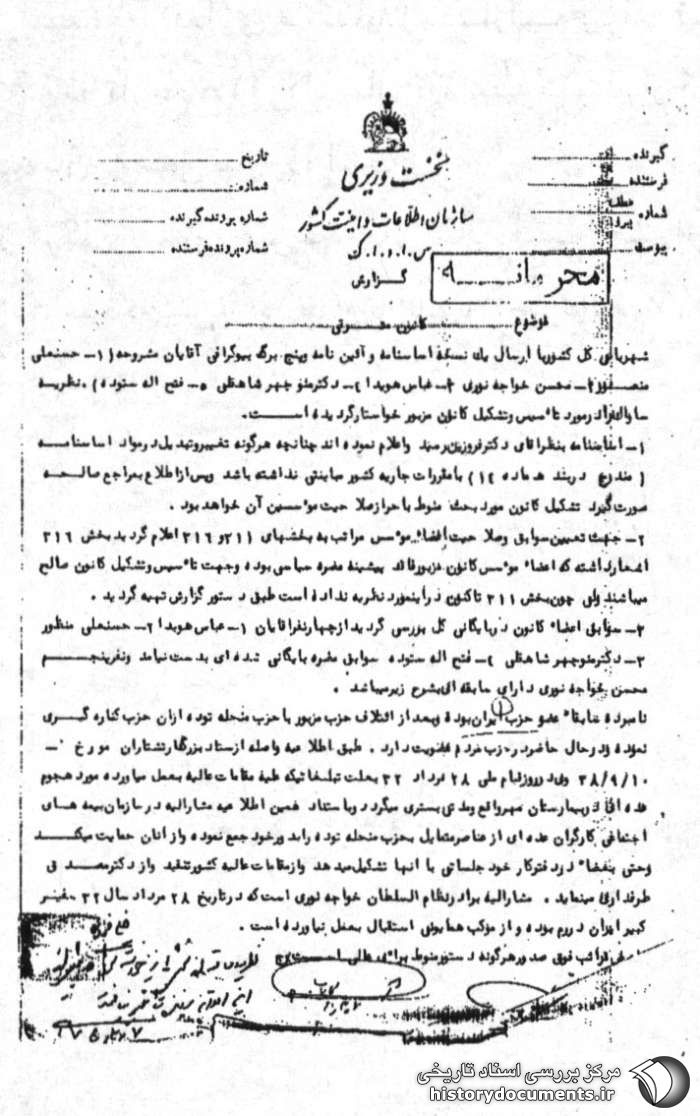 نخست وزیری
سازمان اطلاعات و امنیت کشور
س.ا.و.ا.ک
گیرنده
فرستنده
شماره عطف پیرو
پیوست
تاریخ
شماره
شماره پرونده گیرنده
شماره پرونده فرستنده
محرمانه
گزارش
موضوع کانون مترقی
شهربانی کل کشور با ارسال یک نسخه اساسنامه و آئین نامه و پنج برگ بیوگرافی آقایان مشروحه (۱- حسنعلی
منصور ۲- محسن خواجه نوری ۳- عباس هویدا ۴- دکتر منوچهر شاهقلی ۵- فتح اله ستوده) نظریه
ساواک را در مورد تأسیس و تشکیل کانون مزبور خواستار گردیده است.
۱- اساسنامه بنظر آقای دکتر فروزین رسید و اعلام نموده اند چنانچه هرگونه تغییر و تبدیل در مواد اساسنامه
(مندرج در بند ه ماده ۱۴) با مقررات جاریه کشور مباینتی نداشته باشد و پس از اطلاع بمراجع صالحه
صورت گیرد تشکیل کانون مورد بحث منوط باحراز صلاحیت مؤسسین آن خواهد بود.
۲- جهت تعیین سوابق و صلاحیت اعضاء مؤسس مراتب به بخشهای ۳۱۱ و ۳۱۶ اعلام گردید بخش ۳۱۶
اشعار داشته که اعضاء مؤسس کانون مزبور فاقد پیشینه مضره سیاسی بوده و جهت تأسیس و تشکیل کانون صالح
میباشند ولی چون بخش ۳۱۱ تاکنون در اینمورد نظریه نداده است طبق دستور گزارش تهیه گردید.
۳- سوابق اعضاء کانون در بایگانی کل بررسی گردید از چهار نفر آقایان ۱- عباس هویدا ۲- حسنعلی منظور
۳- دکتر منوچهر شاهقلی ۴- فتح اله ستوده سوابق مضره بایگانی شده ای بدست نیامد و نفر پنجم
محسن خواجه نوری دارای سابقه ای بشرح زیر میباشد.
نامبرده سابقاً عضو حزب ایران بوده و بعد از ائتلاف حزب مزبور با حزب منحله توده از آن حزب کناره گیری
نموده و در حال حاضر در حزب مردم عضویت دارد. طبق اطلاعیه واصله از ستاد بزرگ ارتشتاران مورخ
۳۸/۹/۱۰ وی در روز قیام ملی ۲۸ مرداد ۳۲ بعلت تبلیغاتیکه علیه مقامات عالیه بعمل میآورده مورد هجوم
عده ای در بیمارستان مهر واقع و مدتی بستری میگردد و باستناد همین اطلاعیه مشارالیه در سازمان بیمه های
اجتماعی کارگران عده ای از عناصر متمایل بحزب منحله توده را بدور خود جمع نموده و از آنان حمایت میکند
و حتی بعضاً در دفتر کار خود جلساتی با آنها تشکیل میدهد و از مقامات عالیه کشور تنقید و از دکتر مصدق
طرفداری مینماید. مشارالیه برادر نظام السلطان خواجه نوری است که در تاریخ ۲۸ مرداد سال ۳۲ سفیر
کبیر ایران در رم بوده و از موکب همایونی استقبال بعمل نیاورده است.
مراتب فوق صدور هرگونه دستور منوط برأی عالی است
مرکز بررسی اسناد تاریخی
historydocuments.ir